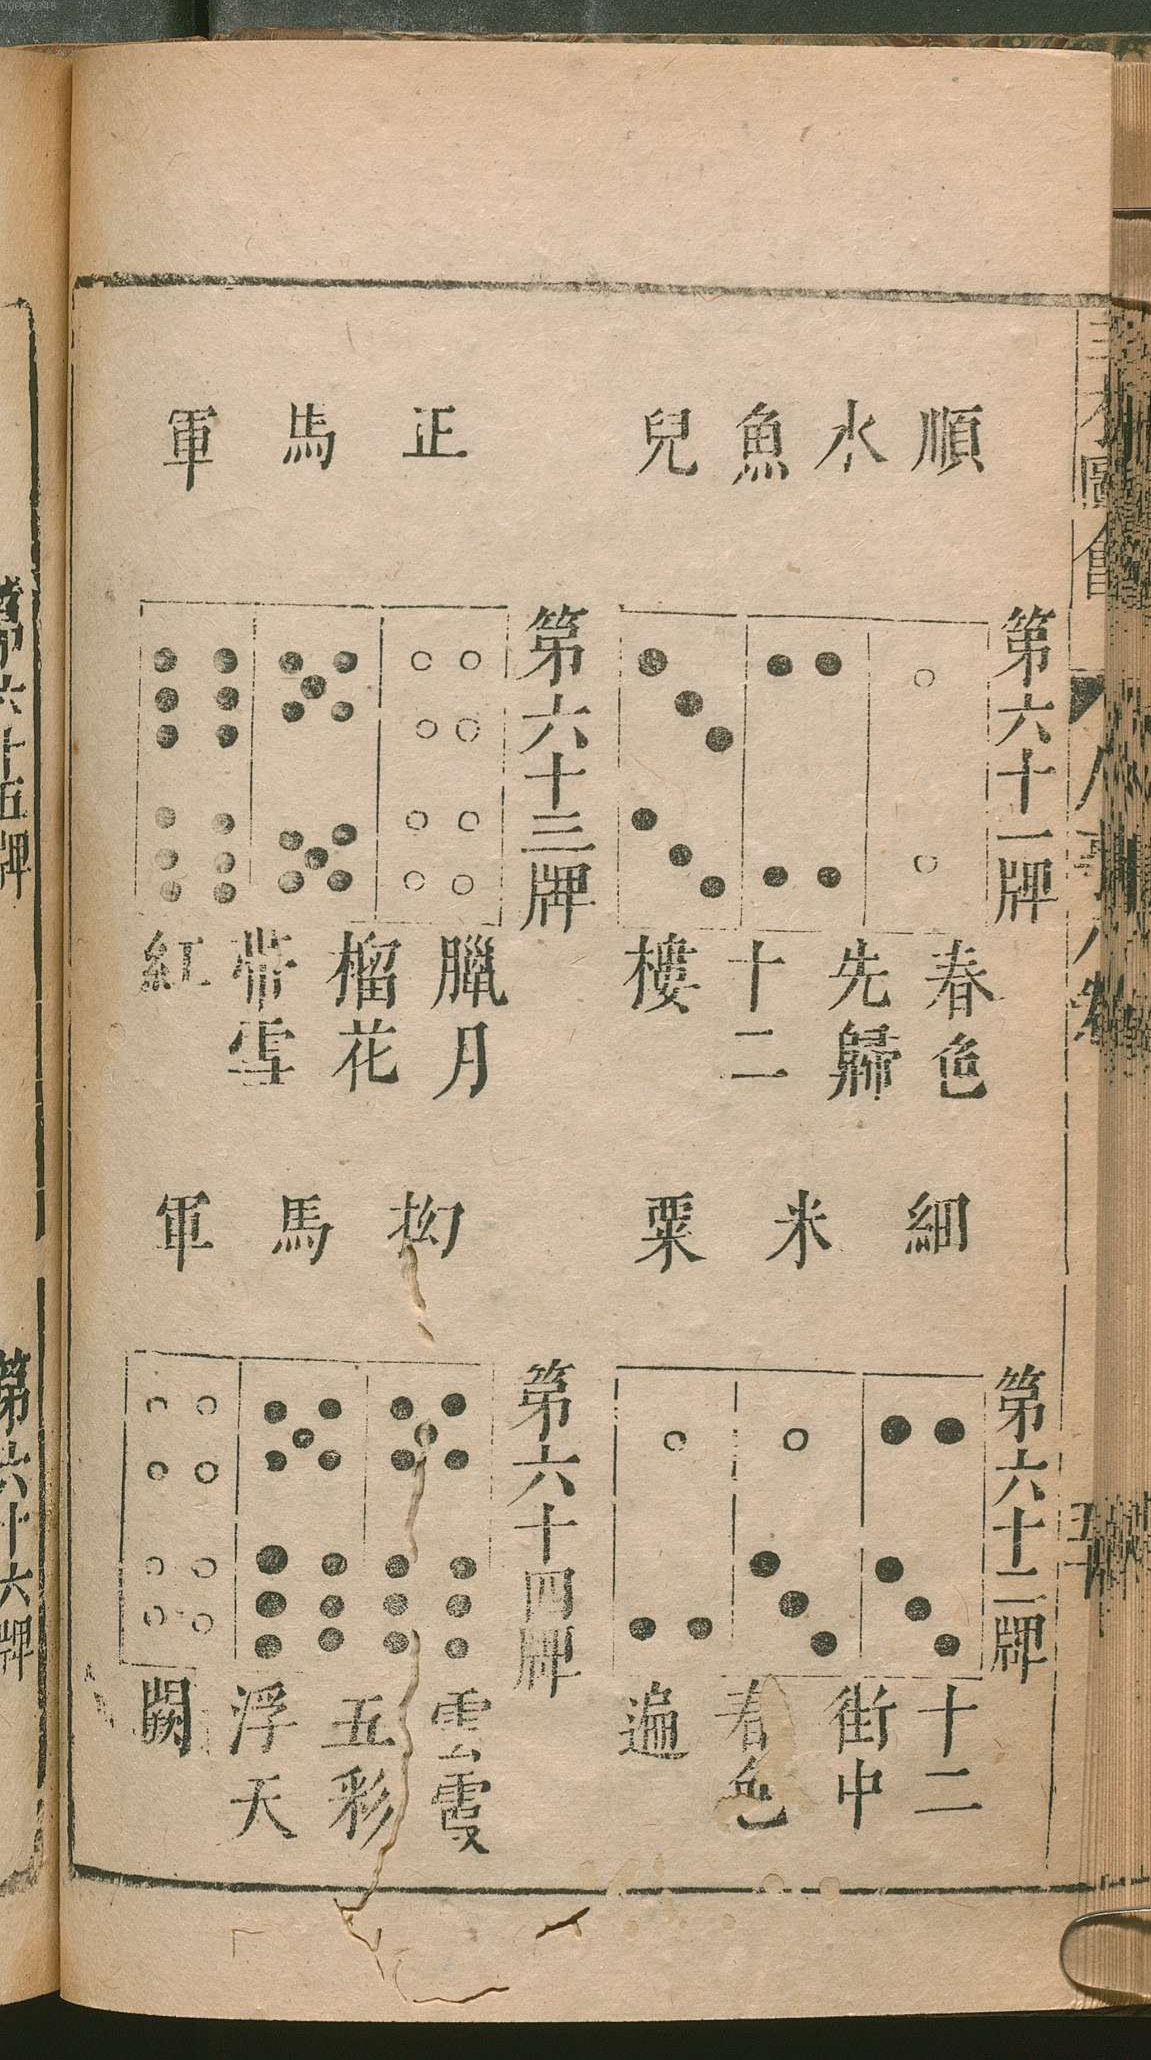 00060348
順水魚兒
第六十一牌
春色
先歸
十二
樓
正馬軍
第六十三牌
臘月
榴花
帶雪
紅
細米粟
第六十二牌
十二
街中
春色
遍
拗馬軍
第六十四牌
雲霞
五彩
浮天
闕
第六十五牌
第六十六牌